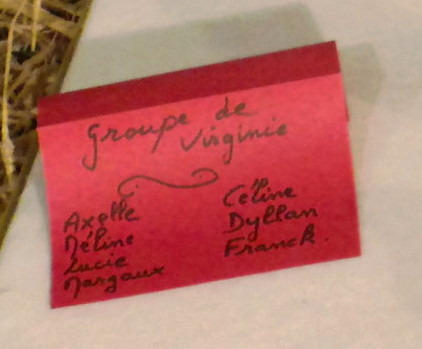 Groupe de
Virginie
Axelle
Méline
Lucie
Margaux
Céline
Dyllan
Franck.